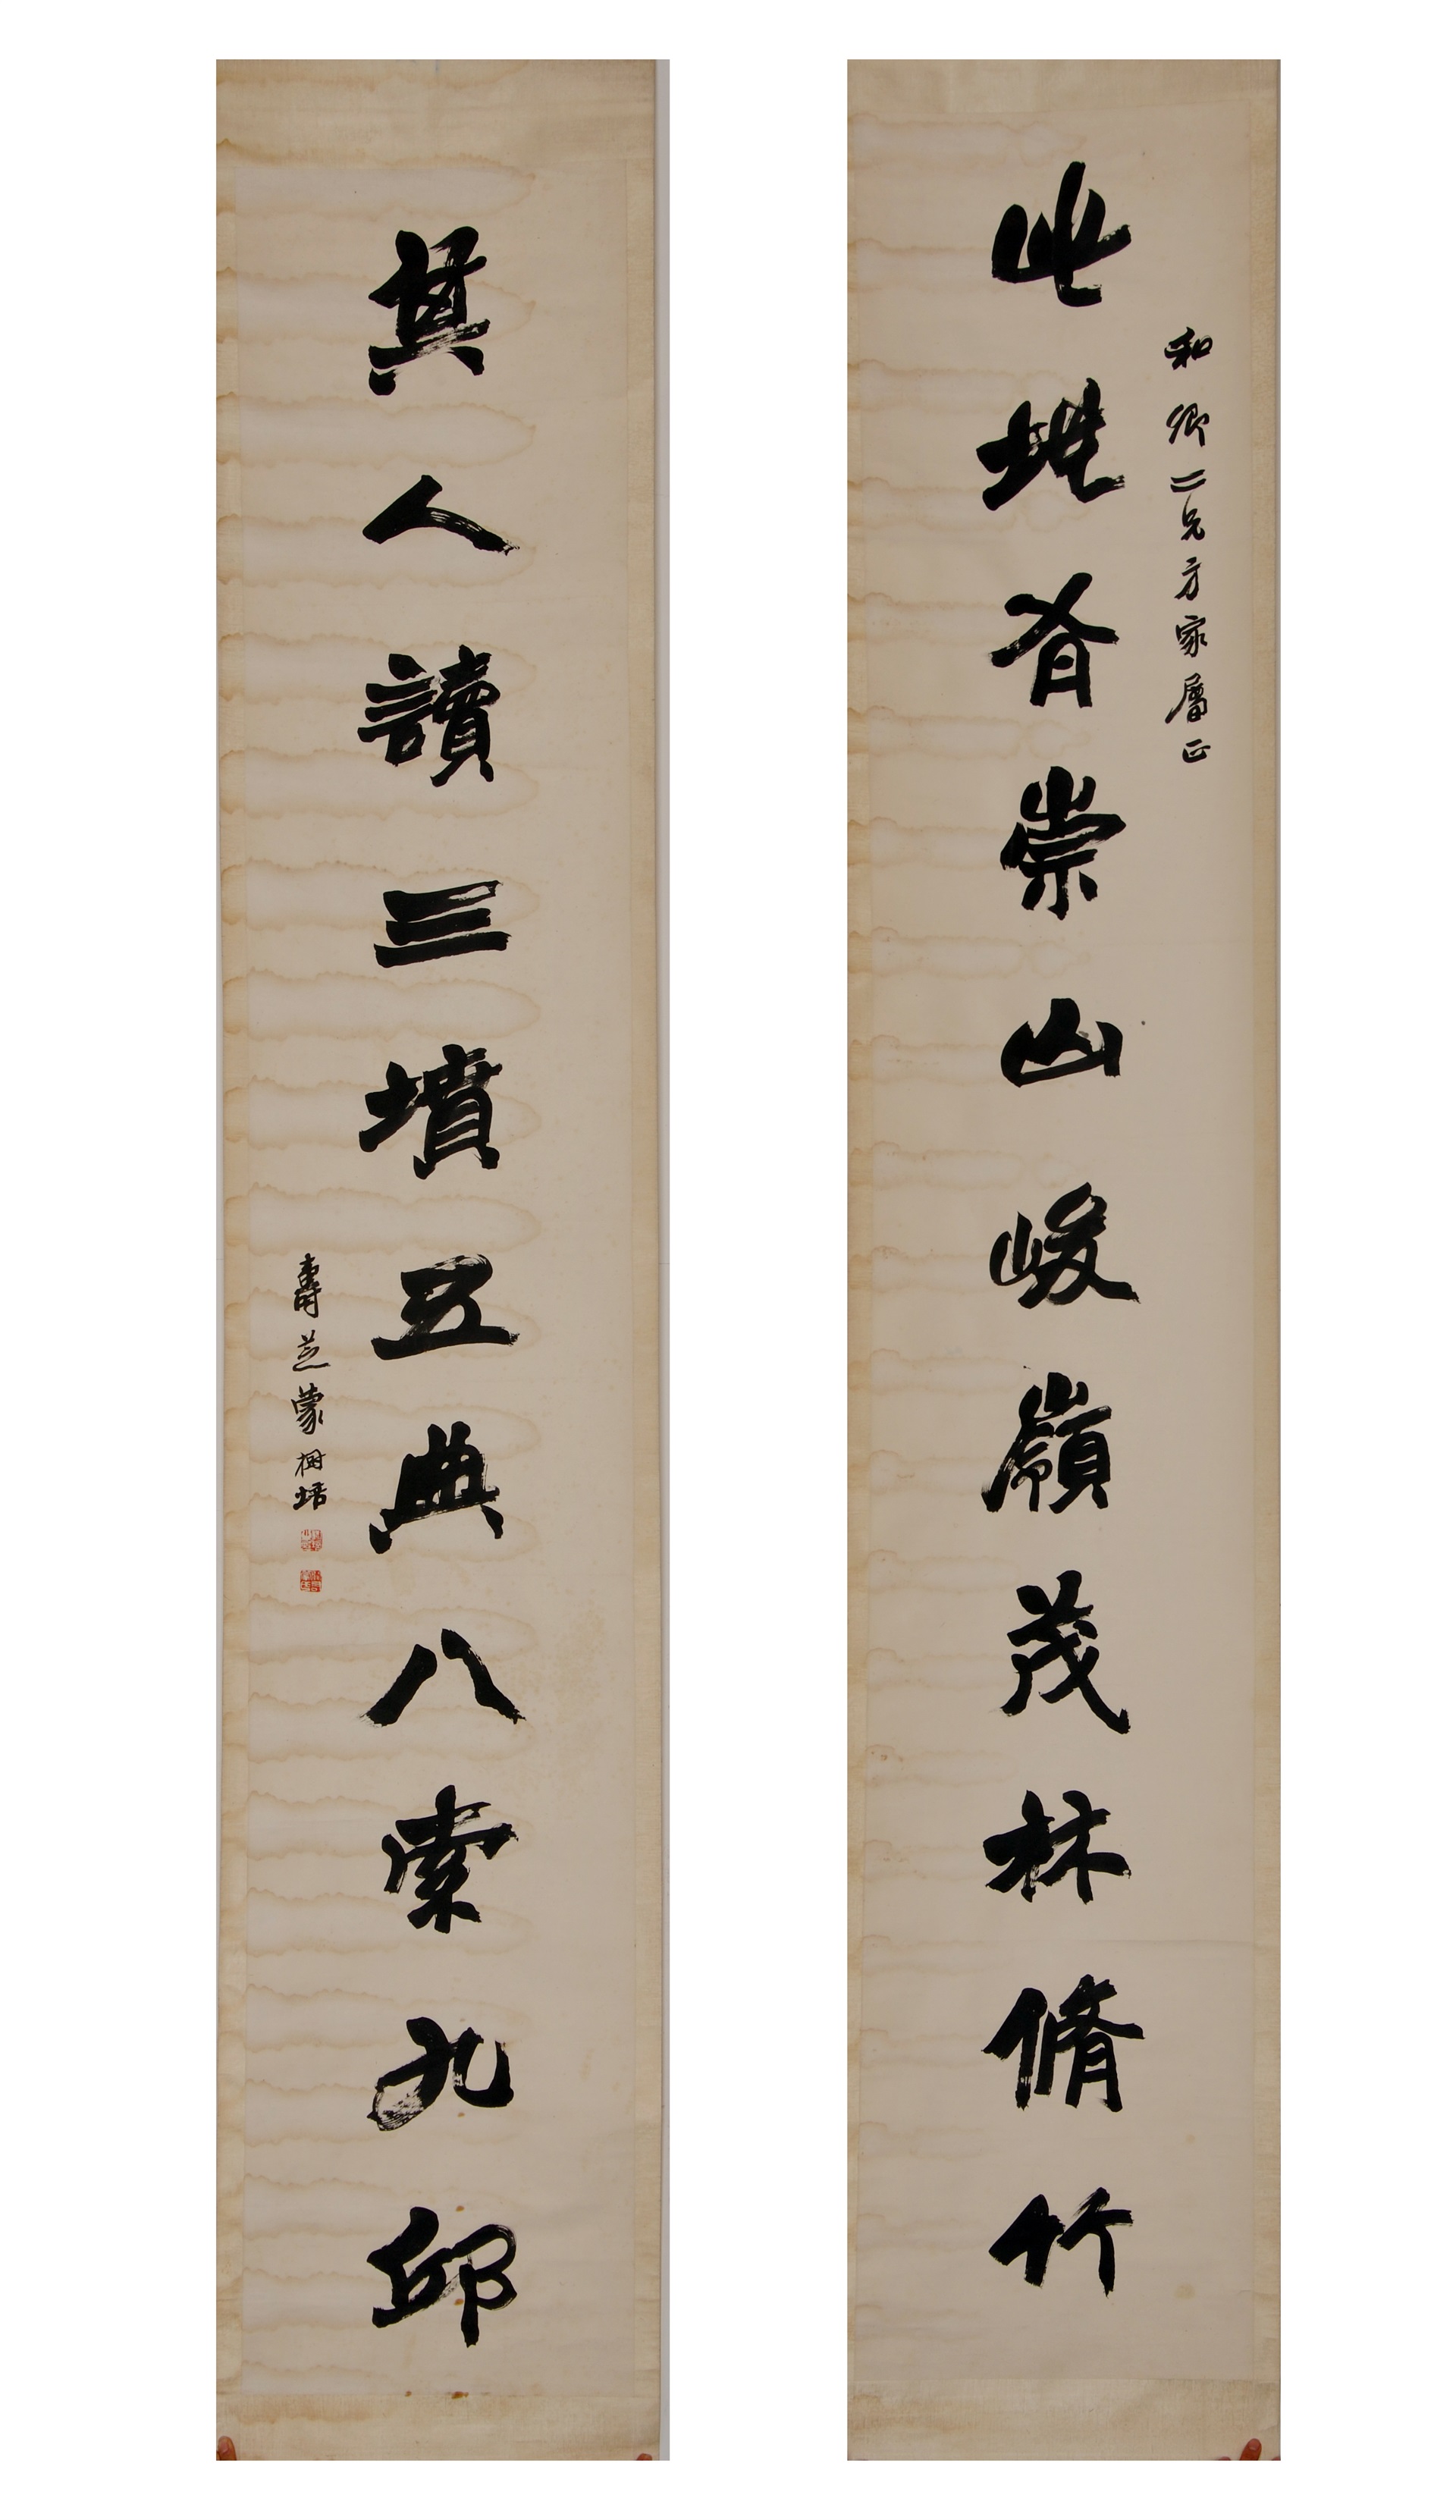 和卿二兄方家屬正
此地有崇山峻嶺茂林脩竹
其人讀三墳五典八索九邱
壽芝蒙桐培